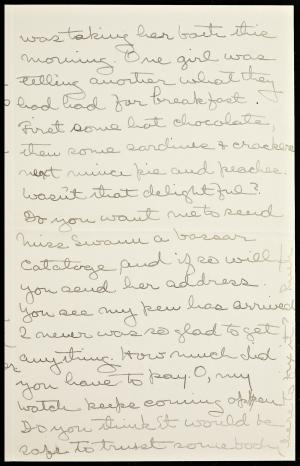 was taking her bath this
morning. One girl was
telling another what they
had had for breakfast.
First some hot chocolate,
then some sardines & crackers
next mince pie and peaches.
Wasn't that delightful?
Do you want me to send
Miss Swann a Vassar
Cataloge and if so will
you send her address.
You see my pen has arrived
I never was so glad to get
anything. How much did
you have to pay. O, my
watch keeps coming open
Do you think it would be
safe to trust somebody